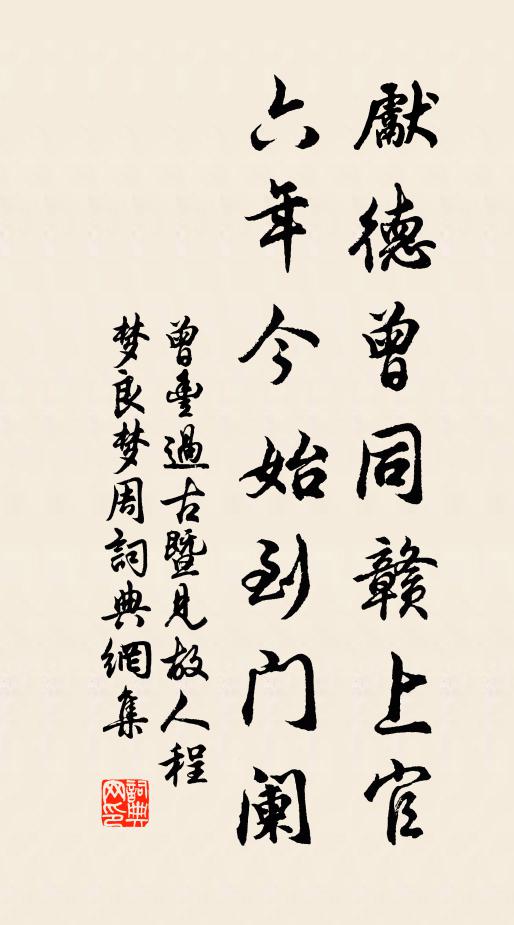 獻德曾同贛上官
六年今始到门阑
曾豊過古暨見故人程
梦良梦周詞典網集
詞典
网印